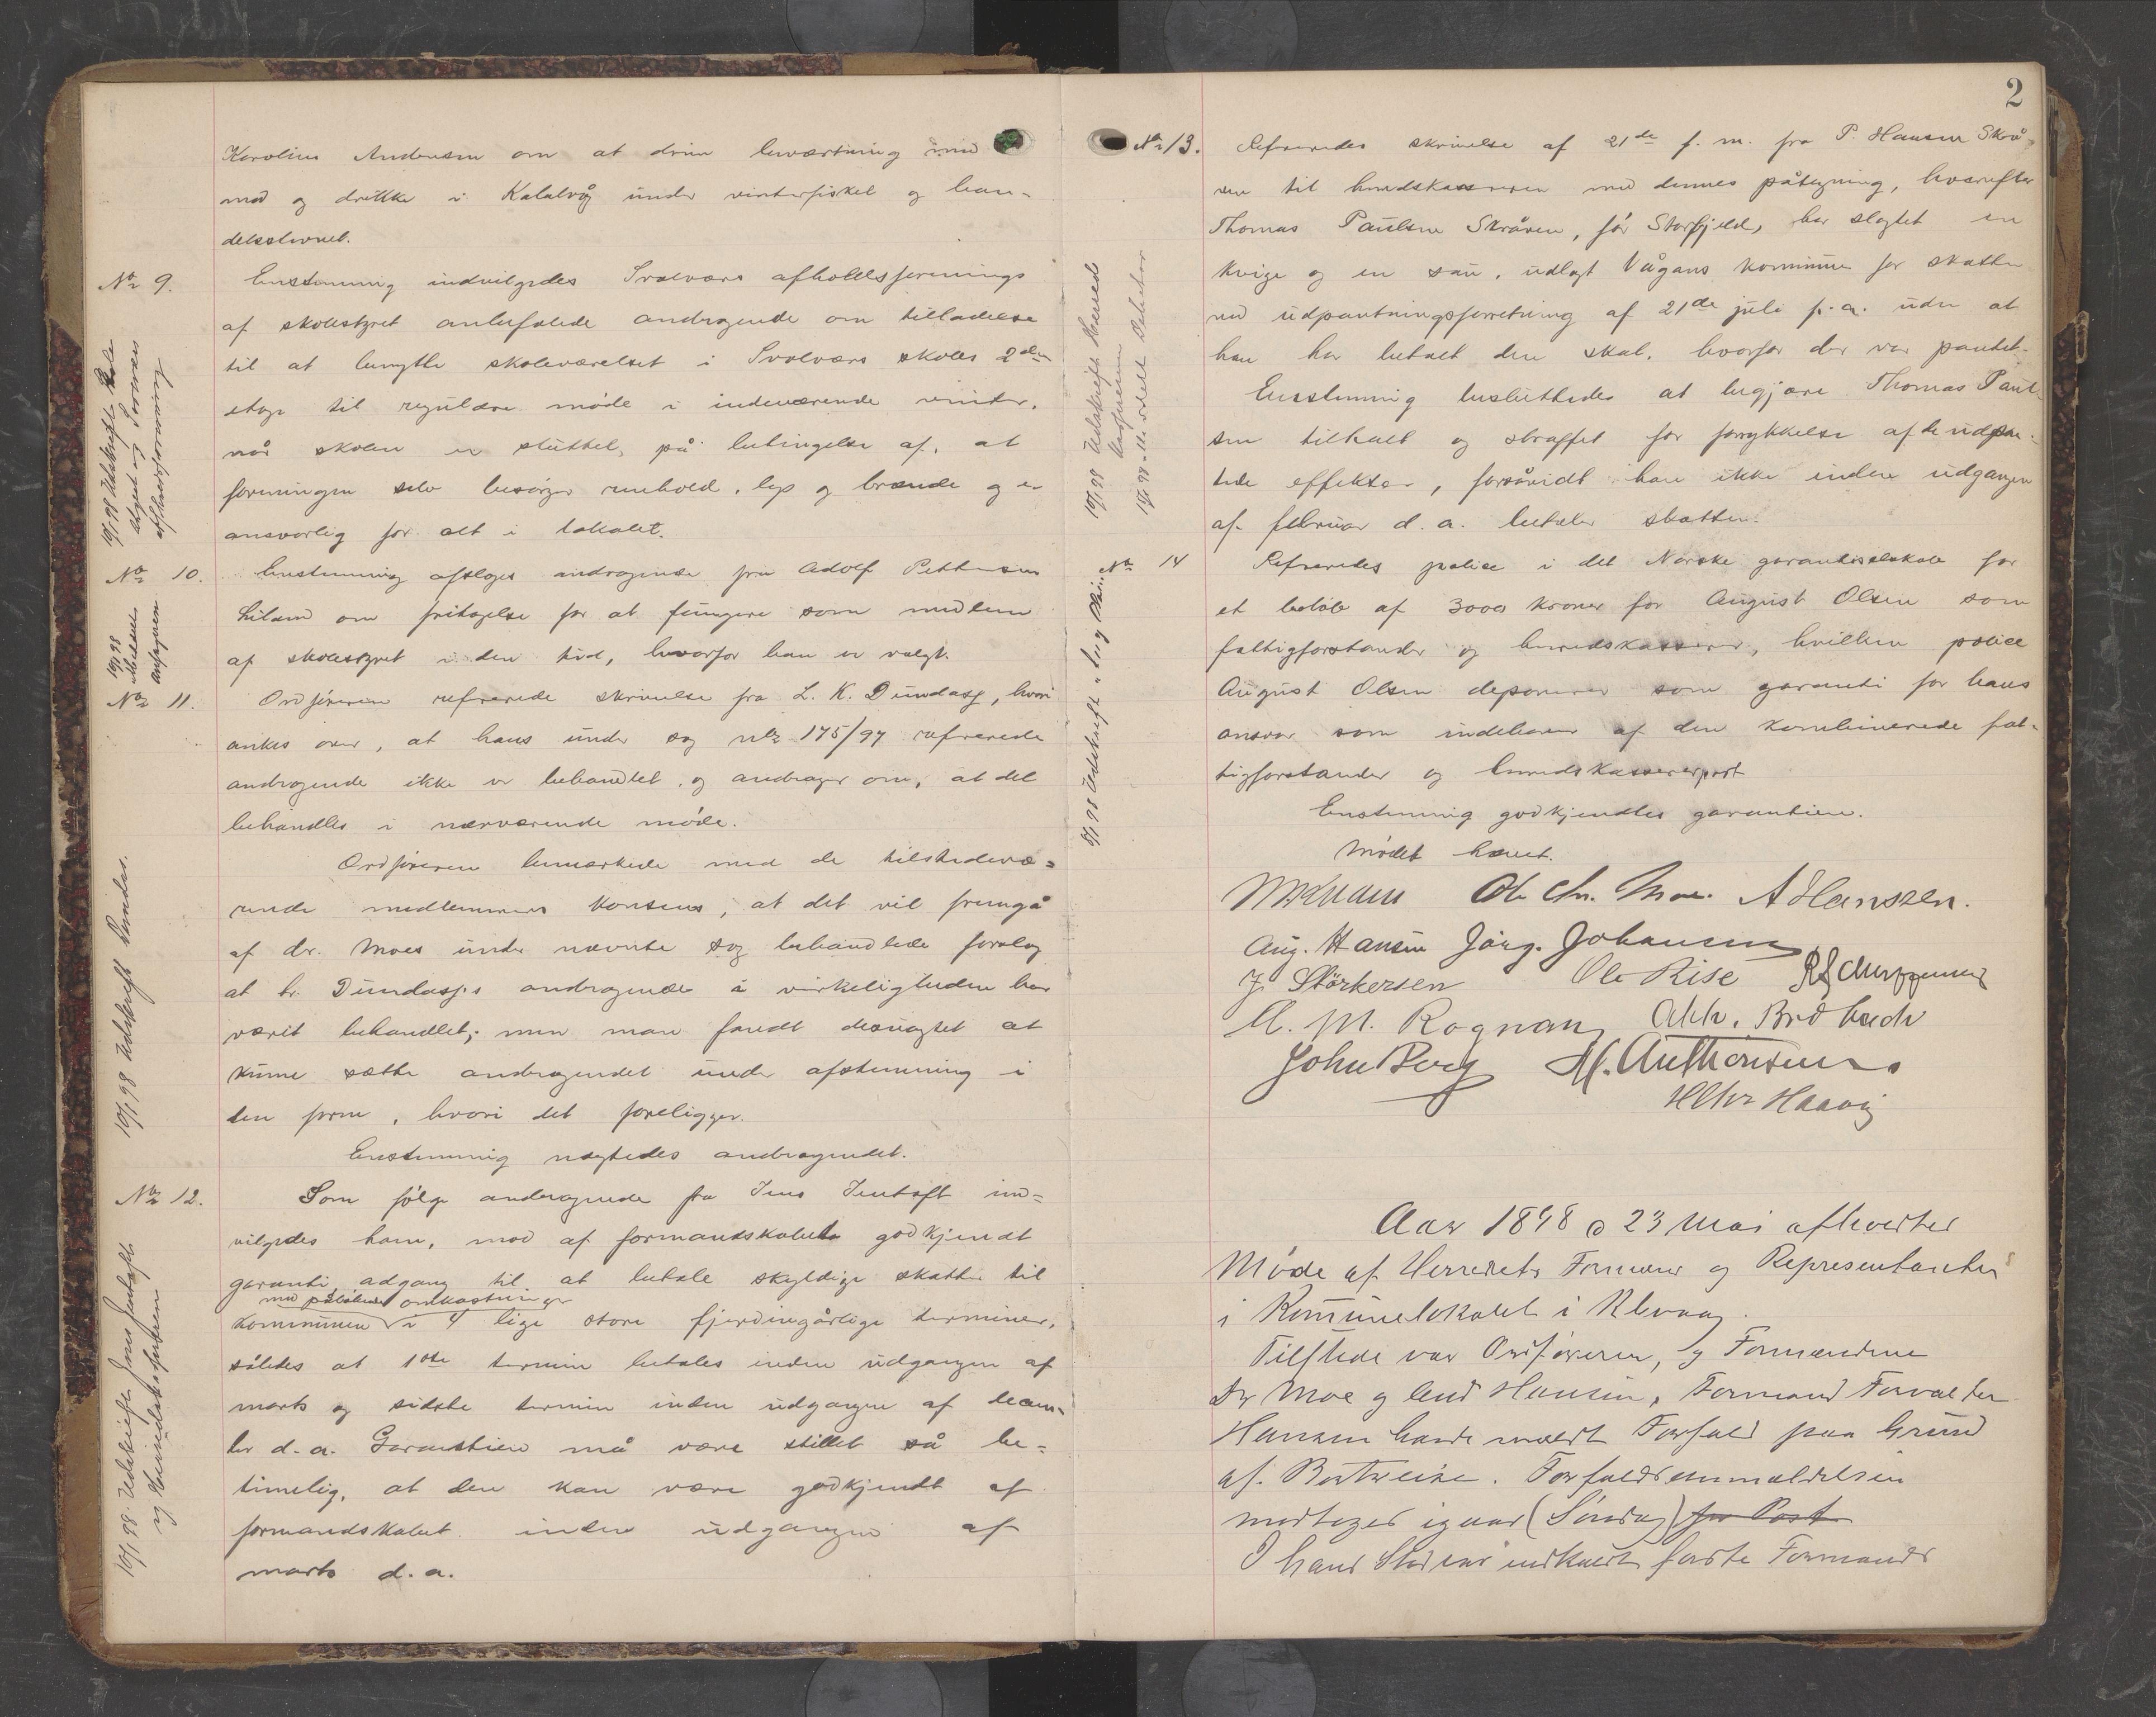 Karolius Andersen om at drive beværtning med
mad og drikke i Kalalvåg under vinterfisket og han-
delsstevnet.
No 9. Enstemmig indvilgedes Svolværs afholdsforenings
af skolestyret anbefalede andragende om tilladelse
til at benytte skoleværelset i Svolværs skoles 2den
etage til regulære møde i indeværende vinter,
når skolen er sluttet, på betingelse af, at
foreningen selv besørger renhold, lys og brænde og er
ansvarlig for alt i lokalet.
10/1 98 Udskrift
afholdsforening
No 10. Enstemmig afsloges andragende fra Adolf Pettersen
om fritagelse for at fungere som medlem
af skolestyret i den tid, hvorfor han er valgt.
10/1 98
No 11. Ordføreren refererede skrivelse fra L. K. Dundasf, hvori
ankes over, at hans under sag No 175/97 refererede
andragende ikke er behandlet, og andrager om, at det
behandles i nærværende møde.
Ordføreren bemærkede med de tilstedevæ=
rende medlemmers konsens, at det vil fremgå
af dr. Moes under nævnte sag behandlede forslag
at hr. Dundasf's andragende i virkeligheden har
været behandlet; men man fandt desuagtet at
kunne sætte andragendet under afstemning i
den form, hvori det foreligger.
Enstemmig nægtedes andragendet.
10/1 98 Udskrift Dundas.
No 12. Som følge andragende fra Jens Jentoft ind=
vilgedes ham, mod af formandskabet godkjendt
garanti, adgang til at betale skyldige skatter til
med påløbne omkostninger
kommunen i 4 lige store fjerdingårlige terminer,
således at 1ste termin betales inden udgangen af
marts og sidste termin inden udgangen af decem-
ber d. a. Garantien må være stillet så be=
timelig, at den kan være godkjendt af
formandskabet inden udgangen af
marts d. a.
10/1 98 Udskrift Jens Jentoft
og Herredskassereren
2
No 13. Refereredes skrivelse af 21de f. m. fra P. Hansen Skrå-
ven til herredskassereren med dennes påtegning, hvorefter
Thomas Paulsen Skråven, før Storfjeld, har slagtet en
kvige og en sau, udlagt Vågans kommune for skatter
ved udpantningsforretning af 21de juli f. a. uden at
han har betalt den skat, hvorfor der var pantet.
Enstemmig besluttedes at begjære Thomas Paul-
sen tiltalt og straffet for forrykkelse af de udpan-
tede effekter, forsåvidt han ikke inden udgangen
af februar d. a. betaler skatten.
10/1 98 Udskrift Herreds
kassereren
No 14 Refereredes police i det Norske garantiselskab for
et beløb af 3000 kroner for August Olsen som
fattigforstander og herredskasserer, hvilken police
August Olsen deponerer som garanti for hans
ansvar som indehaver af den kombinerede fat-
tigforstander og herredskassererpost
Enstemmig godkjendtes garantien.
Mødet hævet.
Ole Chr. Moe. A Hanssen.
Aug. Hansen Jørg. Johansen
J. Störkersen Ole Rise
M. Rognan
John Berg M. Anthonsen
Haavig
Aar 1898 d 23 Mai afholdtes
Møde af Herredets Formænd og Representanter
i Kommunelokalet i
Tilstede var Ordføreren, og Formændene
Dr Moe og Hansen, Formand Forvalter
Hansen havde meldt Forfald paa Grund
af Bortreise. Forfaldsanmeldelsen
modtoges igaar (Søndag) per Post
I hans Sted var indkaldt første Formands